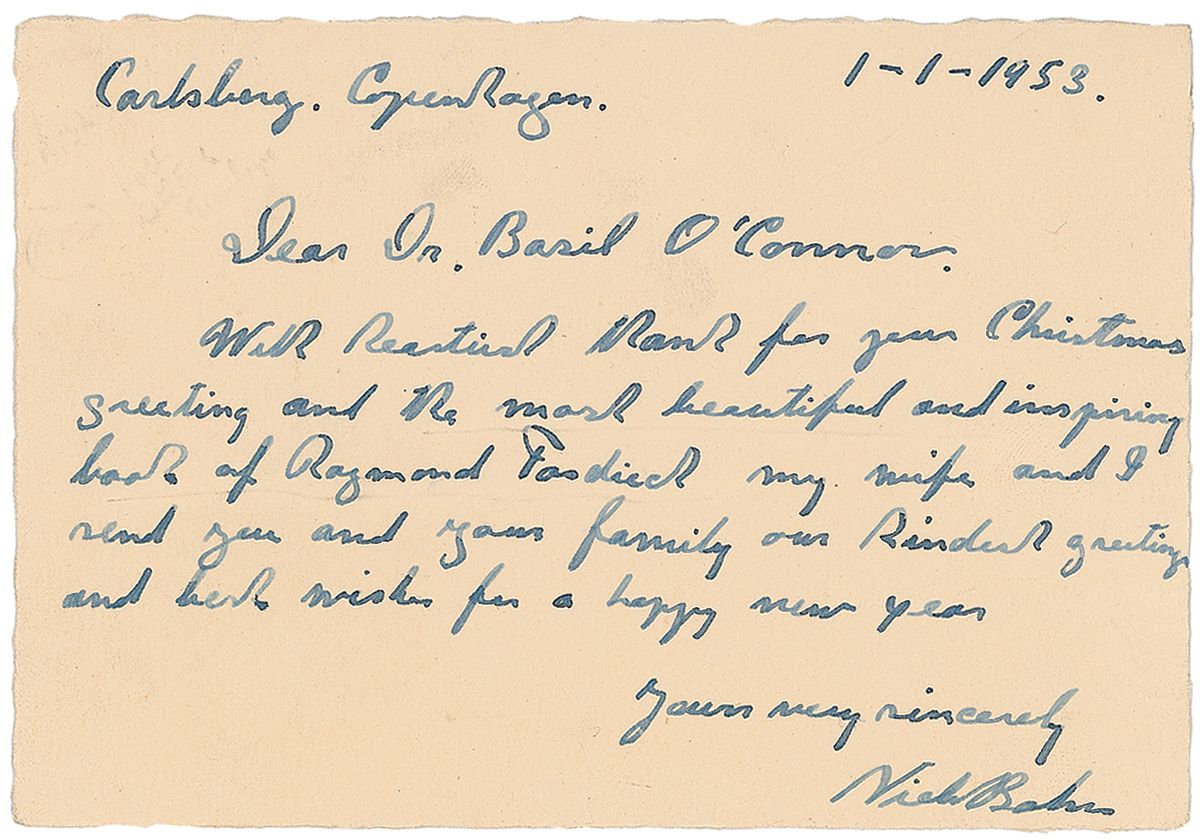 Carlsberg. Copenhagen.
1-1-1953.
Dear Dr. Basil O'Connor.
With heartiest thank for your Christmas
greeting and the most beautiful and inspiring
book of Raymond Fosdick my wife and I
send you and your family our kindest greetings
and best wishes for a happy new year
Yours very sincerely
Niels Bohr